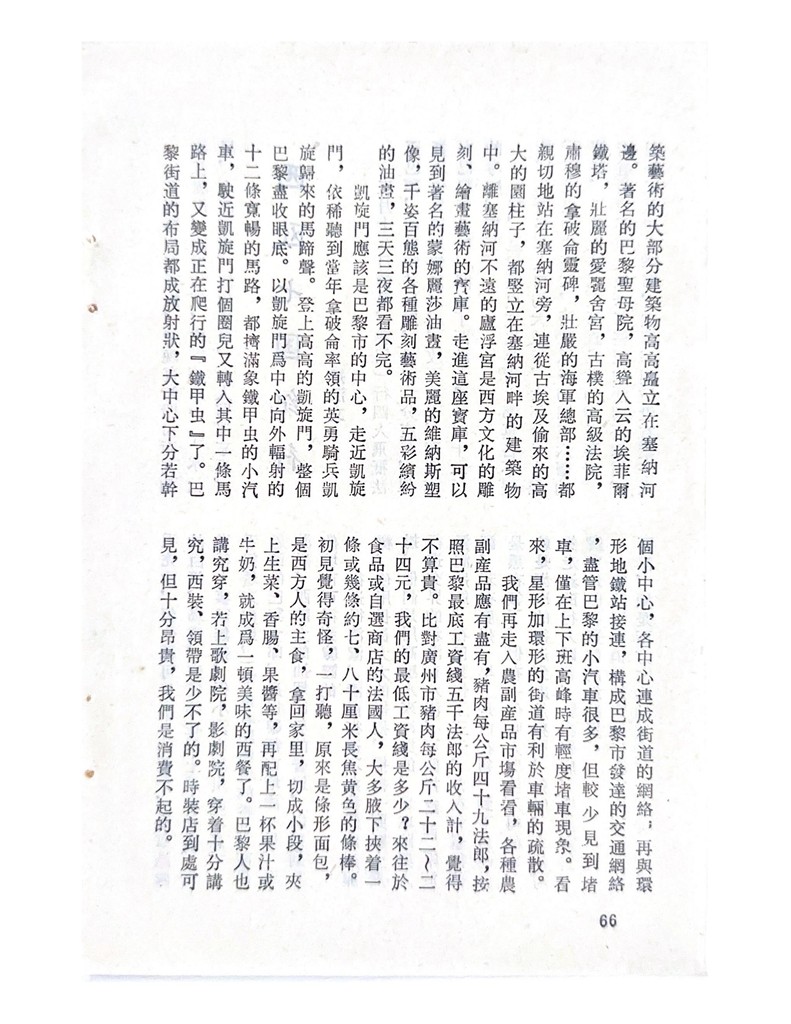 築藝術的大部分建築物高高矗立在塞納河
邊。著名的巴黎聖母院，高聳入云的埃菲爾
鐵塔，壯麗的愛麗舍宮，古樸的高級法院，
肅穆的拿破侖靈碑，壯嚴的海軍總部……都
親切地站在塞納河旁，連從古埃及偷來的高
大的園柱子，都竪立在塞納河畔的建築物
中。離塞納河不遠的廬浮宮是西方文化的雕
刻、繪畫藝術的寳庫。走進這座寳庫，可以
見到著名的蒙娜麗莎油畫，美麗的維納斯塑
像，千姿百態的各種雕刻藝術品，五彩繽紛
的油畫，三天三夜都看不完。
凱旋門應該是巴黎市的中心，走近凱旋
門，依稀聽到當年拿破侖率領的英勇騎兵凱
旋歸來的馬蹄聲。登上高高的凱旋門，整個
巴黎盡收眼底。以凱旋門爲中心向外輻射的
十二條寬暢的馬路，都擠滿象鐵甲虫的小汽
車，駛近凱旋門打個圈兒又轉入其中一條馬
路上，又變成正在爬行的『鐵甲虫』了。巴
黎街道的布局都成放射狀，大中心下分若幹
個小中心，各中心連成街道的網絡；再與環
形地鐵站接連，構成巴黎市發達的交通網絡
，盡管巴黎的小汽車很多，但較少見到堵
車，僅在上下班高峰時有輕度堵車現象。看
來，星形加環形的街道有利於車輛的疏散。
我們再走入農副産品市場看看，各種農
副産品應有盡有，豬肉每公斤四十九法郎，按
照巴黎最底工資綫五千法郎的收入計，覺得
不算貴。比對廣州市豬肉每公斤二十二～二
十四元，我們的最低工資綫是多少？來往於
食品或自選商店的法國人，大多腋下挾着一
條或幾條約七、八十厘米長焦黄色的條棒。
初見覺得奇怪，一打聽，原來是條形面包，
是西方人的主食，拿回家里，切成小段，夾
上生菜、香腸、果醬等，再配上一杯果汁或
牛奶，就成爲一頓美味的西餐了。巴黎人也
講究穿，若上歌劇院，影劇院，穿着十分講
究，西裝、領帶是少不了的。時裝店到處可
見，但十分昂貴，我們是消費不起的。
66